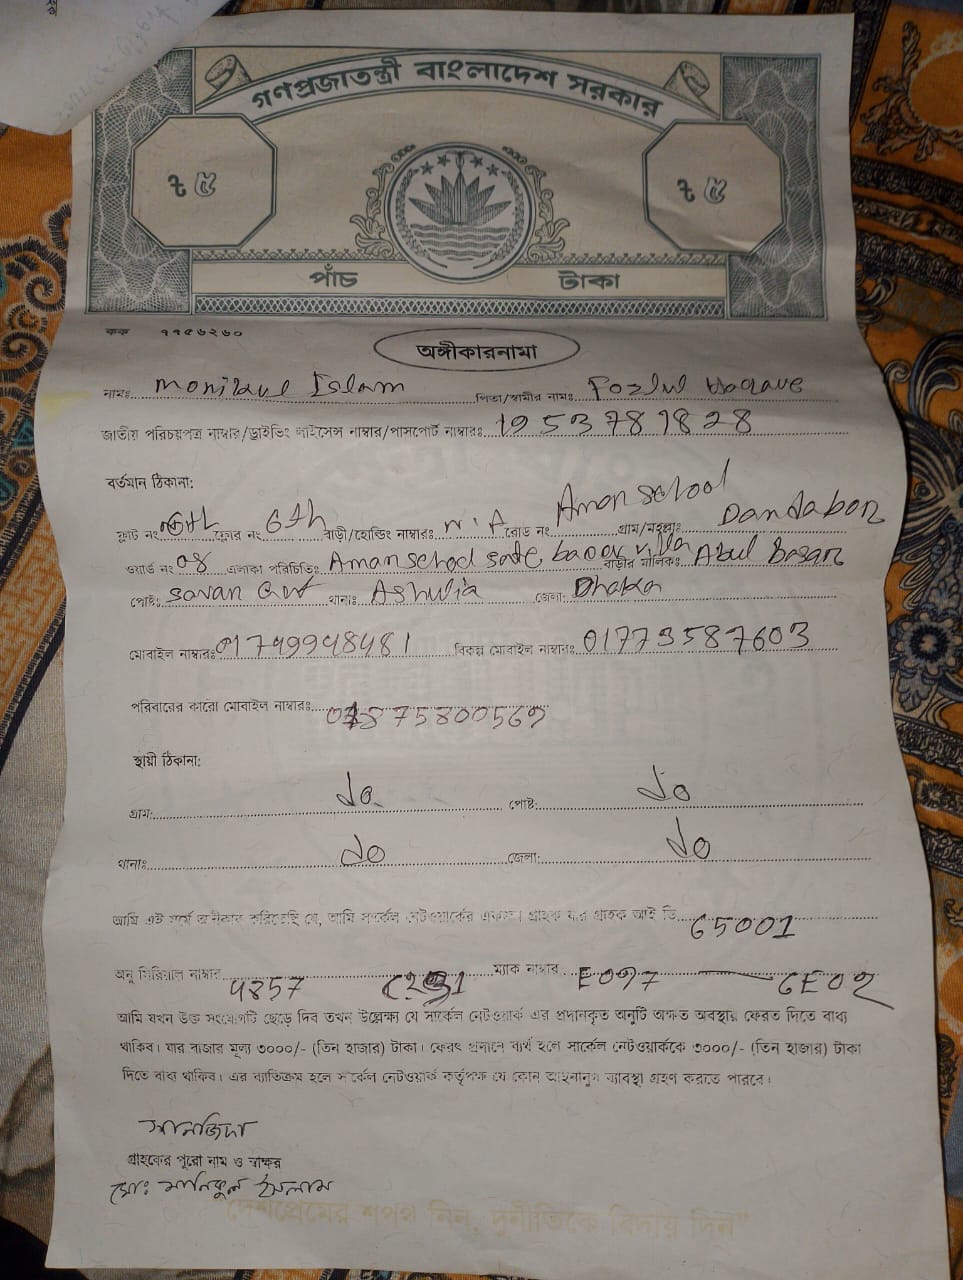 গণপ্রজাতন্ত্রী বাংলাদেশ সরকার
৳ ৫ ৳ ৫
পাঁচ টাকা
কক ৭৭৫৬২৬০
অঙ্গীকারনামা
নামঃ Monirul Islam পিতা/স্বামীর নামঃ Fozlul
জাতীয় পরিচয়পত্র নাম্বার/ড্রাইভিং লাইসেন্স নাম্বার/পাসপোর্ট নাম্বারঃ 19537871828
বর্তমান ঠিকানা:
ফ্লাট নং ফ্লোর নং 6th বাড়ী/হোল্ডিং নাম্বারঃ N.A রোড নং Aman school গ্রাম/মহল্লাঃ Dandabor
ওয়ার্ড নং 08 এলাকা পরিচিতিঃ Aman school villa বাড়ীর মালিকঃ Abul Basar
পোষ্ট: Savar থানাঃ Ashulia জেলা: Dhaka
মোবাইল নাম্বারঃ 01749948481 বিকল্প মোবাইল নাম্বারঃ 01773587603
পরিবারের কারো মোবাইল নাম্বারঃ
স্থায়ী ঠিকানা:
গ্রাম: do পোষ্ট: do
থানাঃ do জেলা: do
আমি এই মর্মে অঙ্গীকার করিতেছি যে, আমি সার্কেল নেটওয়ার্কের একজন গ্রাহক যার গ্রাহক আই ডি 65001
অনু সিরিয়াল নাম্বার 4857 ম্যাক নাম্বার E097 6E02
আমি যখন উক্ত সংযোগটি ছেড়ে দিব তখন উল্লেক্ষ্য যে সার্কেল নেটওয়ার্ক এর প্রদানকৃত অনুটি অক্ষত অবস্থায় ফেরত দিতে বাধ্য
থাকিব। যার বাজার মূল্য ৩০০০/- (তিন হাজার) টাকা। ফেরৎ প্রদানে ব্যর্থ হলে সার্কেল নেটওয়ার্ককে ৩০০০/- (তিন হাজার) টাকা
দিতে বাধ্য থাকিব। এর ব্যাতিক্রম হলে সার্কেল নেটওয়ার্ক কর্তৃপক্ষ যে কোন আইনানুগ ব্যাবস্থা গ্রহণ করতে পারবে।
সানজিদা
গ্রাহকের পুরো নাম ও স্বাক্ষর
মোঃ মনিরুল ইসলাম
"দেশপ্রেমের শপথ নিন, দুর্নীতিকে বিদায় দিন"